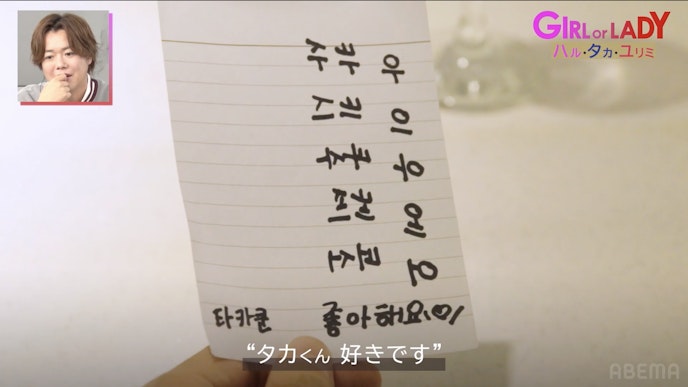 GIRL or LADY
ハル・タカ・ユリミ
아이우에오
카키쿠케코
사시스세소
타카쿤 좋아해요
“タカくん 好きです”
ABEMA